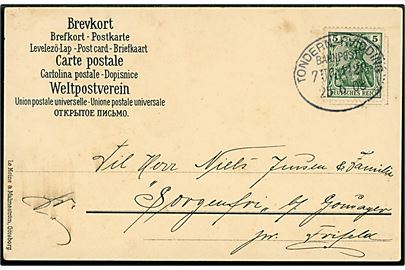 Brevkort
Brefkort - Postkarte
Levelező-Lap - Post card - Briefkaart
Carte postale
Cartolina postale - Dopisnice
Weltpostverein
Union postale universelle - Unione postale universale
ОТКРЫТОЕ ПИСЬМО.
TONDERN
BAHNPOST
5
DEUTSCHES REICH
Til Herr Niels Jensen & Familie
"Sorgenfri" by
pr. Frifelt
Le Moine & Malmeström, Göteborg